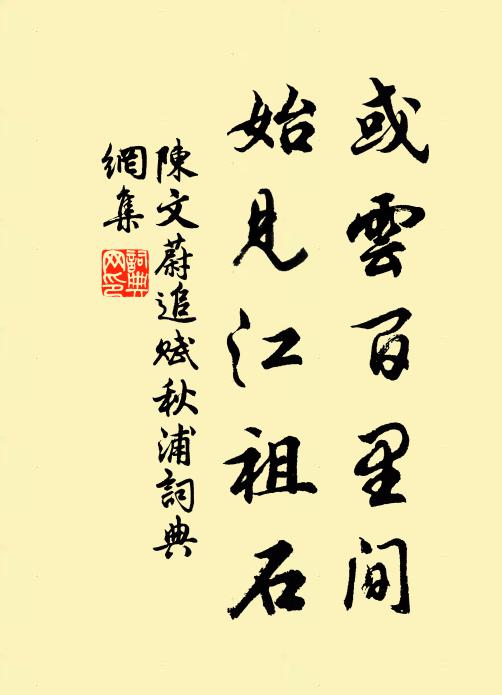 或雲百里间
始見江祖石
陳文蔚追赋秋浦詞典
網集
詞典网印